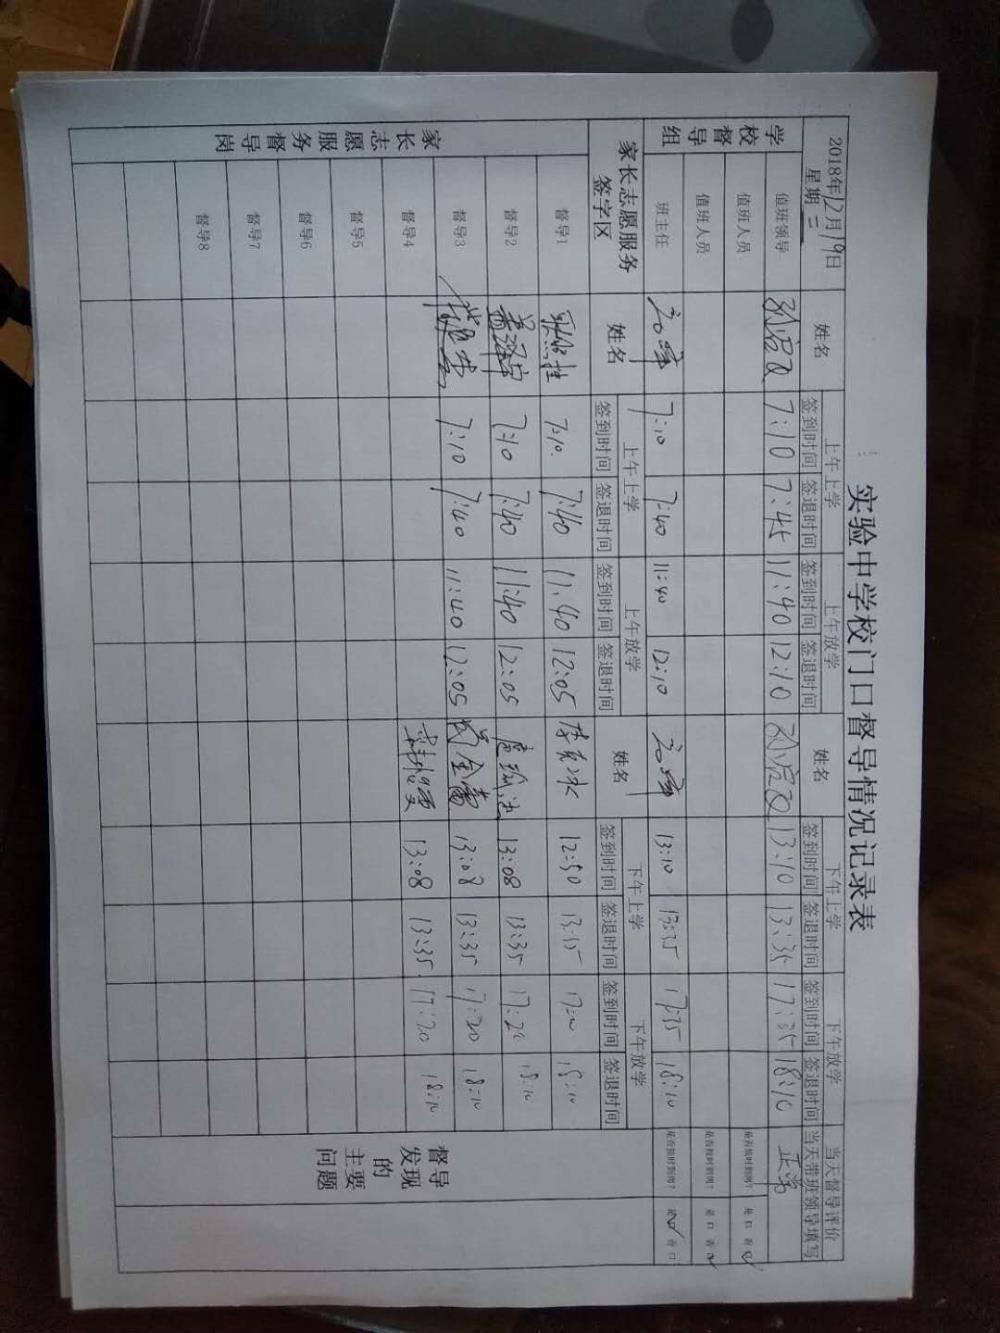 实验中学校门口督导情况记录表
2018年12月19日 星期 三 姓名 上午上学 上午放学 姓名 下午上学 下午放学 当天督导评价
签到时间 签退时间 签到时间 签退时间 签到时间 签退时间 签到时间 签退时间 当天带班领导填写
学校督导组 值班领导 7:10 7:45 11:40 12:10 13:10 13:35 17:35 18:10 正常
值班人员 是否按时到岗? 是 口 否
值班人员 是否按时到岗? 是 口 否
班主任 7:10 7:40 11:40 12:10 13:10 13:35 17:35 18:10 是否按时到岗? 是 否 口
家长志愿服务签字区 姓名 上午上学 上午放学 姓名 下午上学 下午放学 督导发现的主要问题
签到时间 签退时间 签到时间 签退时间 签到时间 签退时间 签到时间 签退时间
家长志愿服务督导岗 督导1 7:10. 7:40 11:40 12:05 12:50 17:20 18:10
督导2 7:10 7:40 11:40 12:05 13:08 13:35 17:20 18:10
督导3 7:10 7:40 11:40 12:05 13:08 13:35 17:20 18:10
督导4 13:08 13:35. 17:20 18:10
督导5
督导6
督导7
督导8